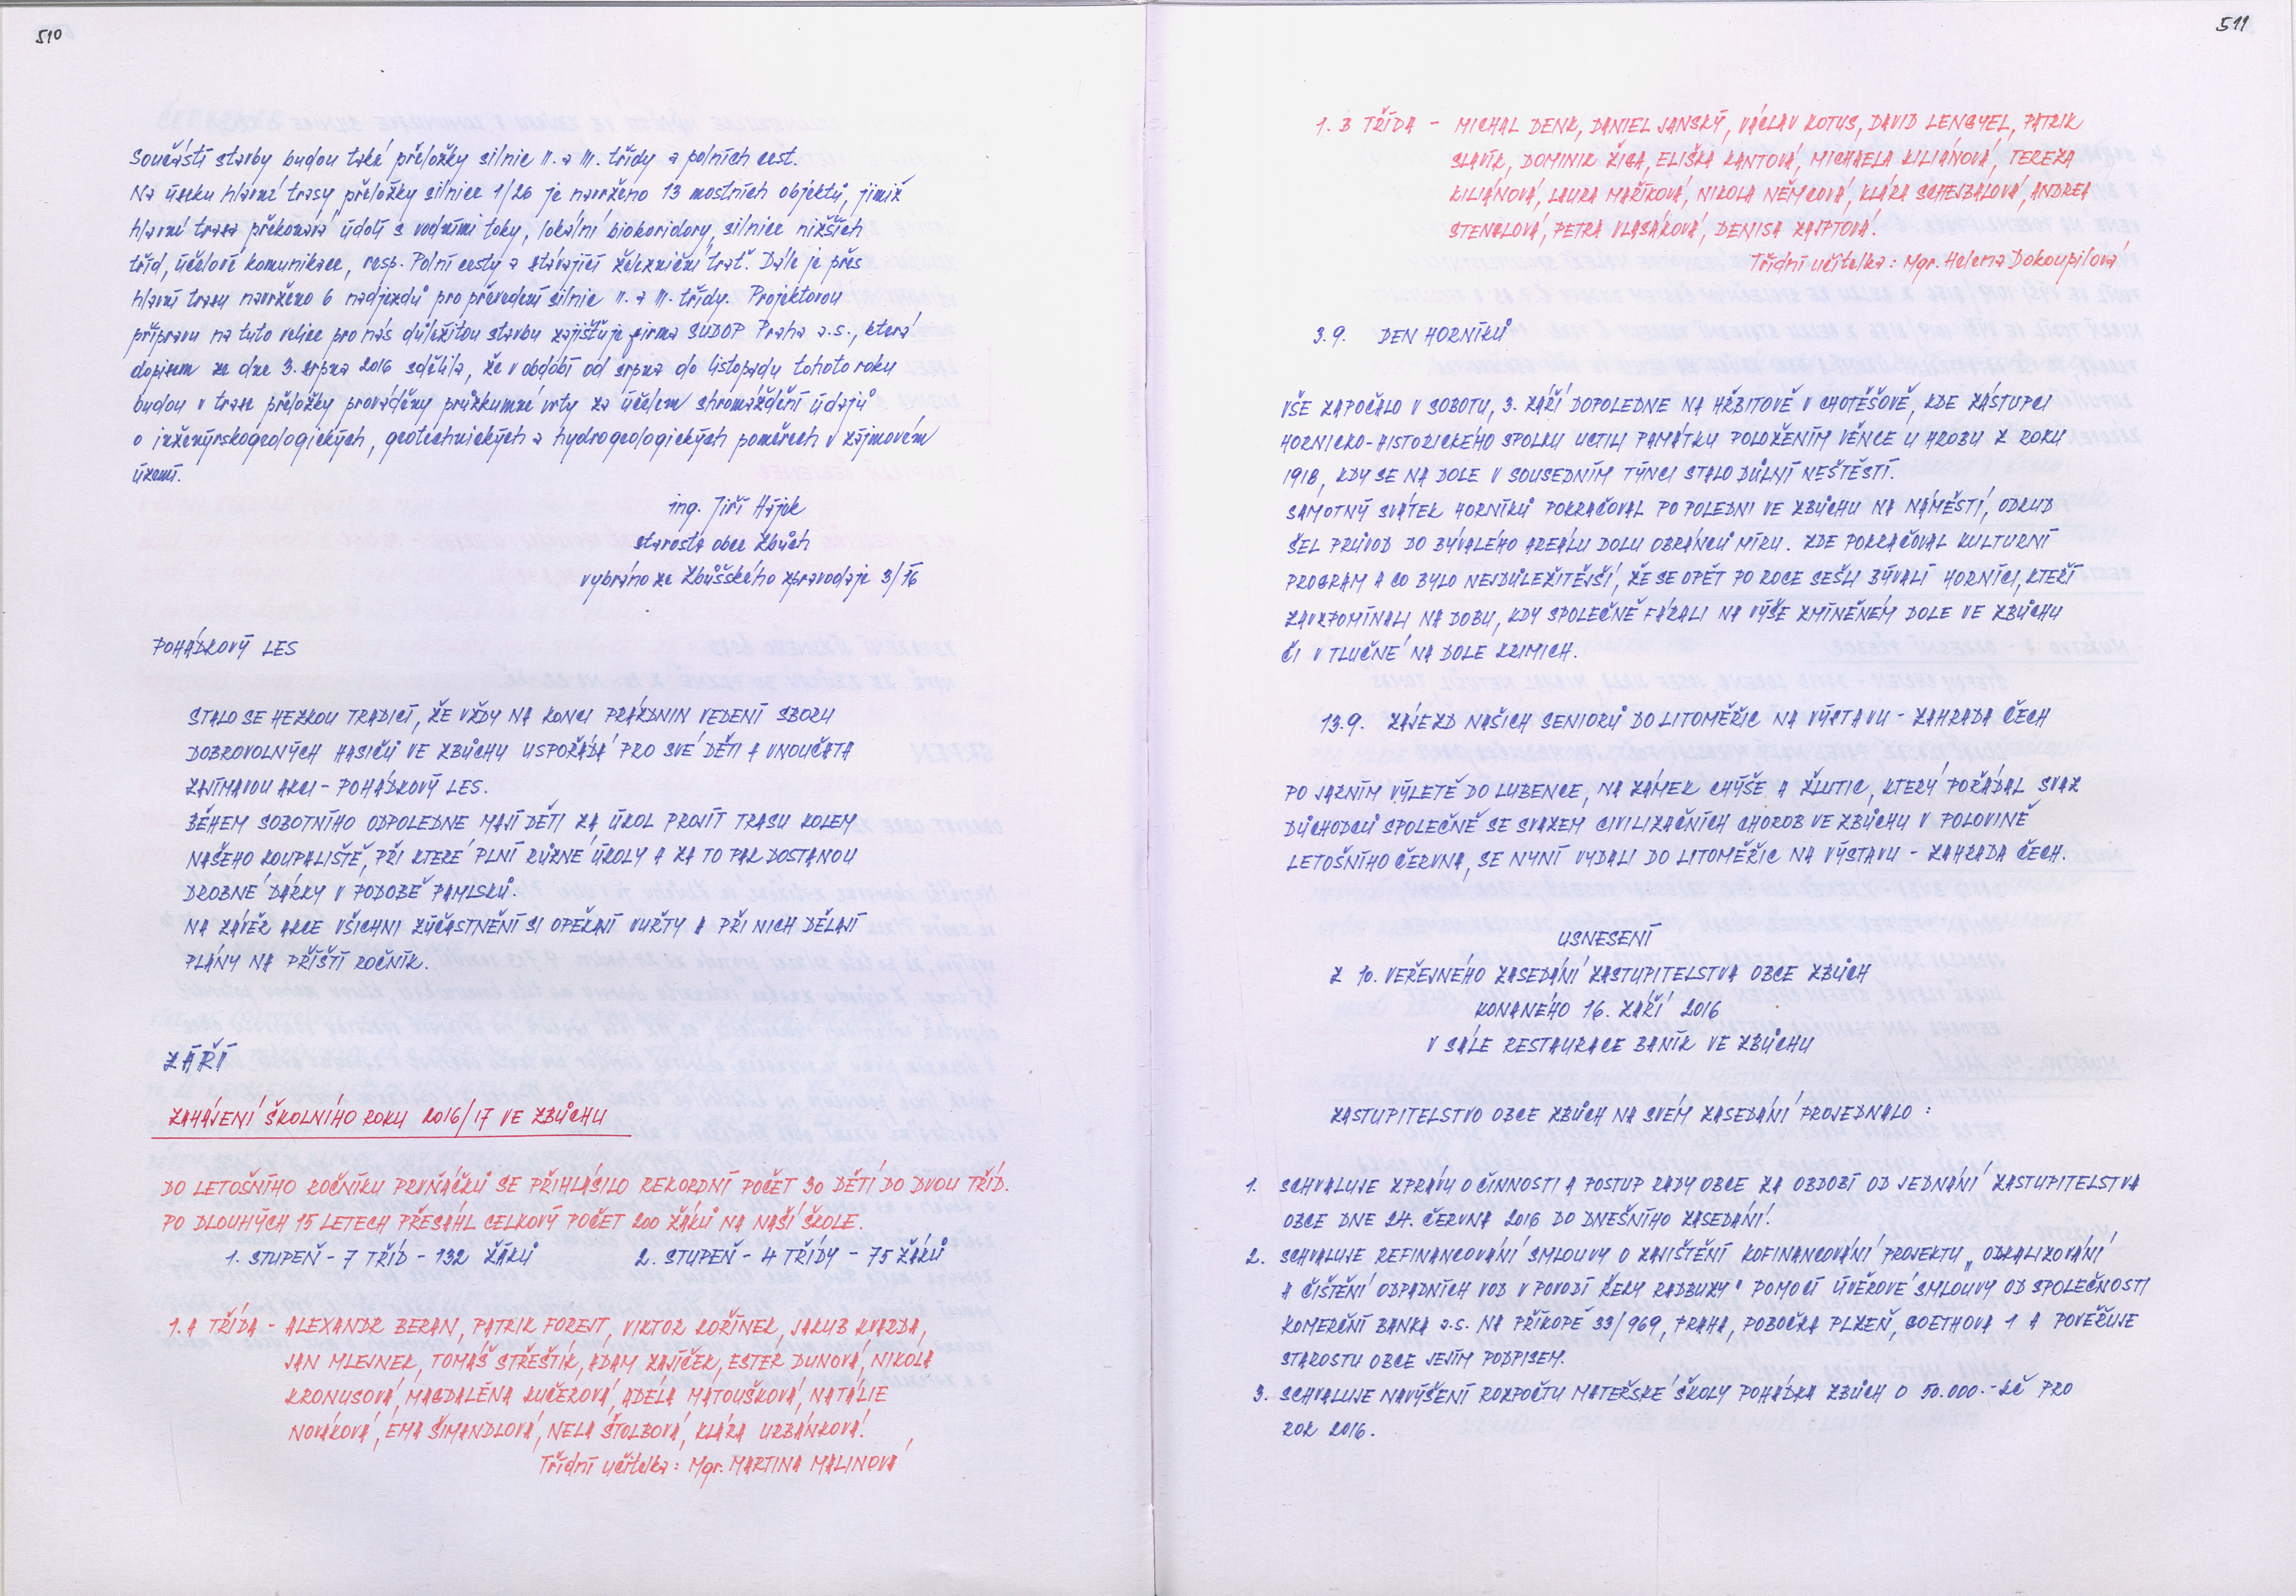 510
Součástí stavby budou také přeložky silnic II. a III. třídy a polních cest.
Na úseku hlavní trasy přeložky silnice 1/26 je navrženo 13 mostních objektů, jimiž
hlavní trasa překonává údolí s vodními toky, lokální biokoridory, silnice nižších
tříd, účelové komunikace, resp. Polní cesty a stávající železniční trať. Dále je přes
hlavní trasu navrženo 6 nadjezdů pro převedení silnic II. a III. třídy. Projektovou
přípravu na tuto velice pro nás důležitou stavbu zajišťuje firma SUDOP Praha a.s., která
dopisem ze dne 3. srpna 2016 sdělila, že v období od srpna do listopadu tohoto roku
budou v trase přeložky prováděny průzkumné vrty za účelem shromáždění údajů
o inženýrskogeologických, geotechnických a hydrogeologických poměrech v zájmovém
území.
ing. Jiří Hájek
starosta obce Zbůch
vybráno ze Zbůšského zpravodaje 3/16
POHÁDKOVÝ LES
STALO SE HEZKOU TRADICÍ, ŽE VŽDY NA KONCI PRÁZDNIN VEDENÍ SBORU
DOBROVOLNÝCH HASIČŮ VE ZBŮCHU USPOŘÁDÁ PRO SVÉ DĚTI A VNOUČATA
ZAJÍMAVOU AKCI - POHÁDKOVÝ LES.
BĚHEM SOBOTNÍHO ODPOLEDNE MAJÍ DĚTI ZA ÚKOL PROJÍT TRASU KOLEM
NAŠEHO KOUPALIŠTĚ, PŘI KTERÉ PLNÍ RŮZNÉ ÚKOLY A ZA TO PAK DOSTANOU
DROBNÉ DÁRKY V PODOBĚ PAMLSKŮ.
NA ZÁVĚR AKCE VŠICHNI ZÚČASTNĚNÍ SI OPÉKAJÍ VUŘTY A PŘI NICH DĚLAJÍ
PLÁNY NA PŘÍŠTÍ ROČNÍK.
ZÁŘÍ
ZAHÁJENÍ ŠKOLNÍHO ROKU 2016/17 VE ZBŮCHU
DO LETOŠNÍHO ROČNÍKU PRVŇÁČKŮ SE PŘIHLÁSILO REKORDNÍ POČET 30 DĚTÍ DO DVOU TŘÍD.
PO DLOUHÝCH 15 LETECH PŘESÁHL CELKOVÝ POČET 200 ŽÁKŮ NA NAŠÍ ŠKOLE.
1. STUPEŇ - 7 TŘÍD - 132 ŽÁKŮ 2. STUPEŇ - 4 TŘÍDY - 75 ŽÁKŮ
1. A TŘÍDA - ALEXANDR BERAN, PATRIK FOREJT, VIKTOR KOŘÍNEK, JAKUB KVARDA,
JAN MLEJNEK, TOMÁŠ STŘEŠTÍK, ADAM ZAJÍČEK, ESTER DUNOVÁ, NIKOLA
KRONUSOVÁ, MAGDALÉNA KUČEROVÁ, ADÉLA MATOUŠKOVÁ, NATÁLIE
NOVÁKOVÁ, EMA ŠIMANDLOVÁ, NELA ŠTOLBOVÁ, KLÁRA URBÁNKOVÁ.
Třídní učitelka: Mgr. MARTINA MALINOVÁ
511
1. B TŘÍDA - MICHAL DENK, DANIEL JANSKÝ, VÁCLAV KOTUS, DAVID LENGYEL, PATRIK
SLAVÍK, DOMINIK ŽIGA, ELIŠKA KANTOVÁ, MICHAELA KILIÁNOVÁ, TEREZA
KILIÁNOVÁ, LAURA MAŘÍKOVÁ, NIKOLA NĚMCOVÁ, KLÁRA SCHEJBALOVÁ, ANDREA
STENGLOVÁ, PETRA VLASÁKOVÁ, DENISA ZAJPTOVÁ.
Třídní učitelka: Mgr. Helena Dokoupilová
3.9. DEN HORNÍKŮ
VŠE ZAPOČALO V SOBOTU, 3. ZÁŘÍ DOPOLEDNE NA HŘBITOVĚ V CHOTĚŠOVĚ, KDE ZÁSTUPCI
HORNICKO-HISTORICKÉHO SPOLKU UCTILI PAMÁTKU POLOŽENÍM VĚNCE U HROBU Z ROKU
1918, KDY SE NA DOLE V SOUSEDNÍM TÝNCI STALO DŮLNÍ NEŠTĚSTÍ.
SAMOTNÝ SVÁTEK HORNÍKŮ POKRAČOVAL PO POLEDNI VE ZBŮCHU NA NÁMĚSTÍ, ODKUD
ŠEL PRŮVOD DO BÝVALÉHO AREÁLU DOLU OBRÁNCŮ MÍRU. ZDE POKRAČOVAL KULTURNÍ
PROGRAM A CO BYLO NEJDŮLEŽITĚJŠÍ, ŽE SE OPĚT PO ROCE SEŠLI BÝVALÍ HORNÍCI, KTEŘÍ
ZAVZPOMÍNALI NA DOBU, KDY SPOLEČNĚ FÁRALI NA VÝŠE ZMÍNĚNÉM DOLE VE ZBŮCHU
ČI V TLUČNÉ NA DOLE KRIMICH.
13.9. ZÁJEZD NAŠICH SENIORŮ DO LITOMĚŘIC NA VÝSTAVU - ZAHRADA ČECH
PO JARNÍM VÝLETĚ DO LUBENCE, NA ZÁMEK CHÝŠE A ŽLUTIC, KTERÝ POŘÁDAL SVAZ
DŮCHODCŮ SPOLEČNĚ SE SVAZEM CIVILIZAČNÍCH CHOROB VE ZBŮCHU V POLOVINĚ
LETOŠNÍHO ČERVNA, SE NYNÍ VYDALI DO LITOMĚŘIC NA VÝSTAVU - ZAHRADA ČECH.
USNESENÍ
Z 10. VEŘEJNÉHO ZASEDÁNÍ ZASTUPITELSTVA OBCE ZBŮCH
KONANÉHO 16. ZÁŘÍ 2016
V SÁLE RESTAURACE BANÍK VE ZBŮCHU
ZASTUPITELSTVO OBCE ZBŮCH NA SVÉM ZASEDÁNÍ PROJEDNALO:
1. SCHVALUJE ZPRÁVU O ČINNOSTI A POSTUP RADY OBCE ZA OBDOBÍ OD JEDNÁNÍ ZASTUPITELSTVA
OBCE DNE 24. ČERVNA 2016 DO DNEŠNÍHO ZASEDÁNÍ.
2. SCHVALUJE REFINANCOVÁNÍ SMLOUVY O ZAJIŠTĚNÍ KOFINANCOVÁNÍ PROJEKTU „ODKALIZOVÁNÍ
A ČIŠTĚNÍ ODPADNÍCH VOD V POVODÍ ŘEKY RADBUZY" POMOCÍ ÚVĚROVÉ SMLOUVY OD SPOLEČNOSTI
KOMERČNÍ BANKA a.s. NA PŘÍKOPĚ 33/969, PRAHA, POBOČKA PLZEŇ, GOETHOVA 1 A POVĚŘUJE
STAROSTU OBCE JEJÍM PODPISEM.
3. SCHVALUJE NAVÝŠENÍ ROZPOČTU MATEŘSKÉ ŠKOLY POHÁDKA ZBŮCH O 50.000.- KČ PRO
ROK 2016.